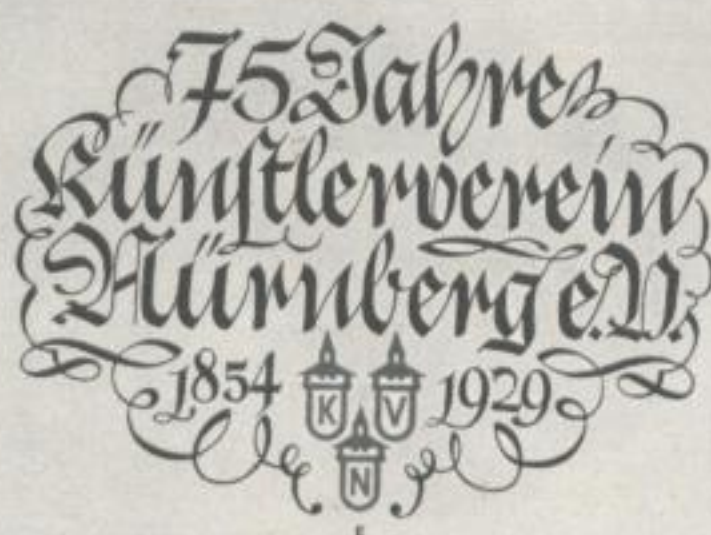 75 Jahre
Künstlerverein
Nürnberg e.V.
1854 K V 1929
N